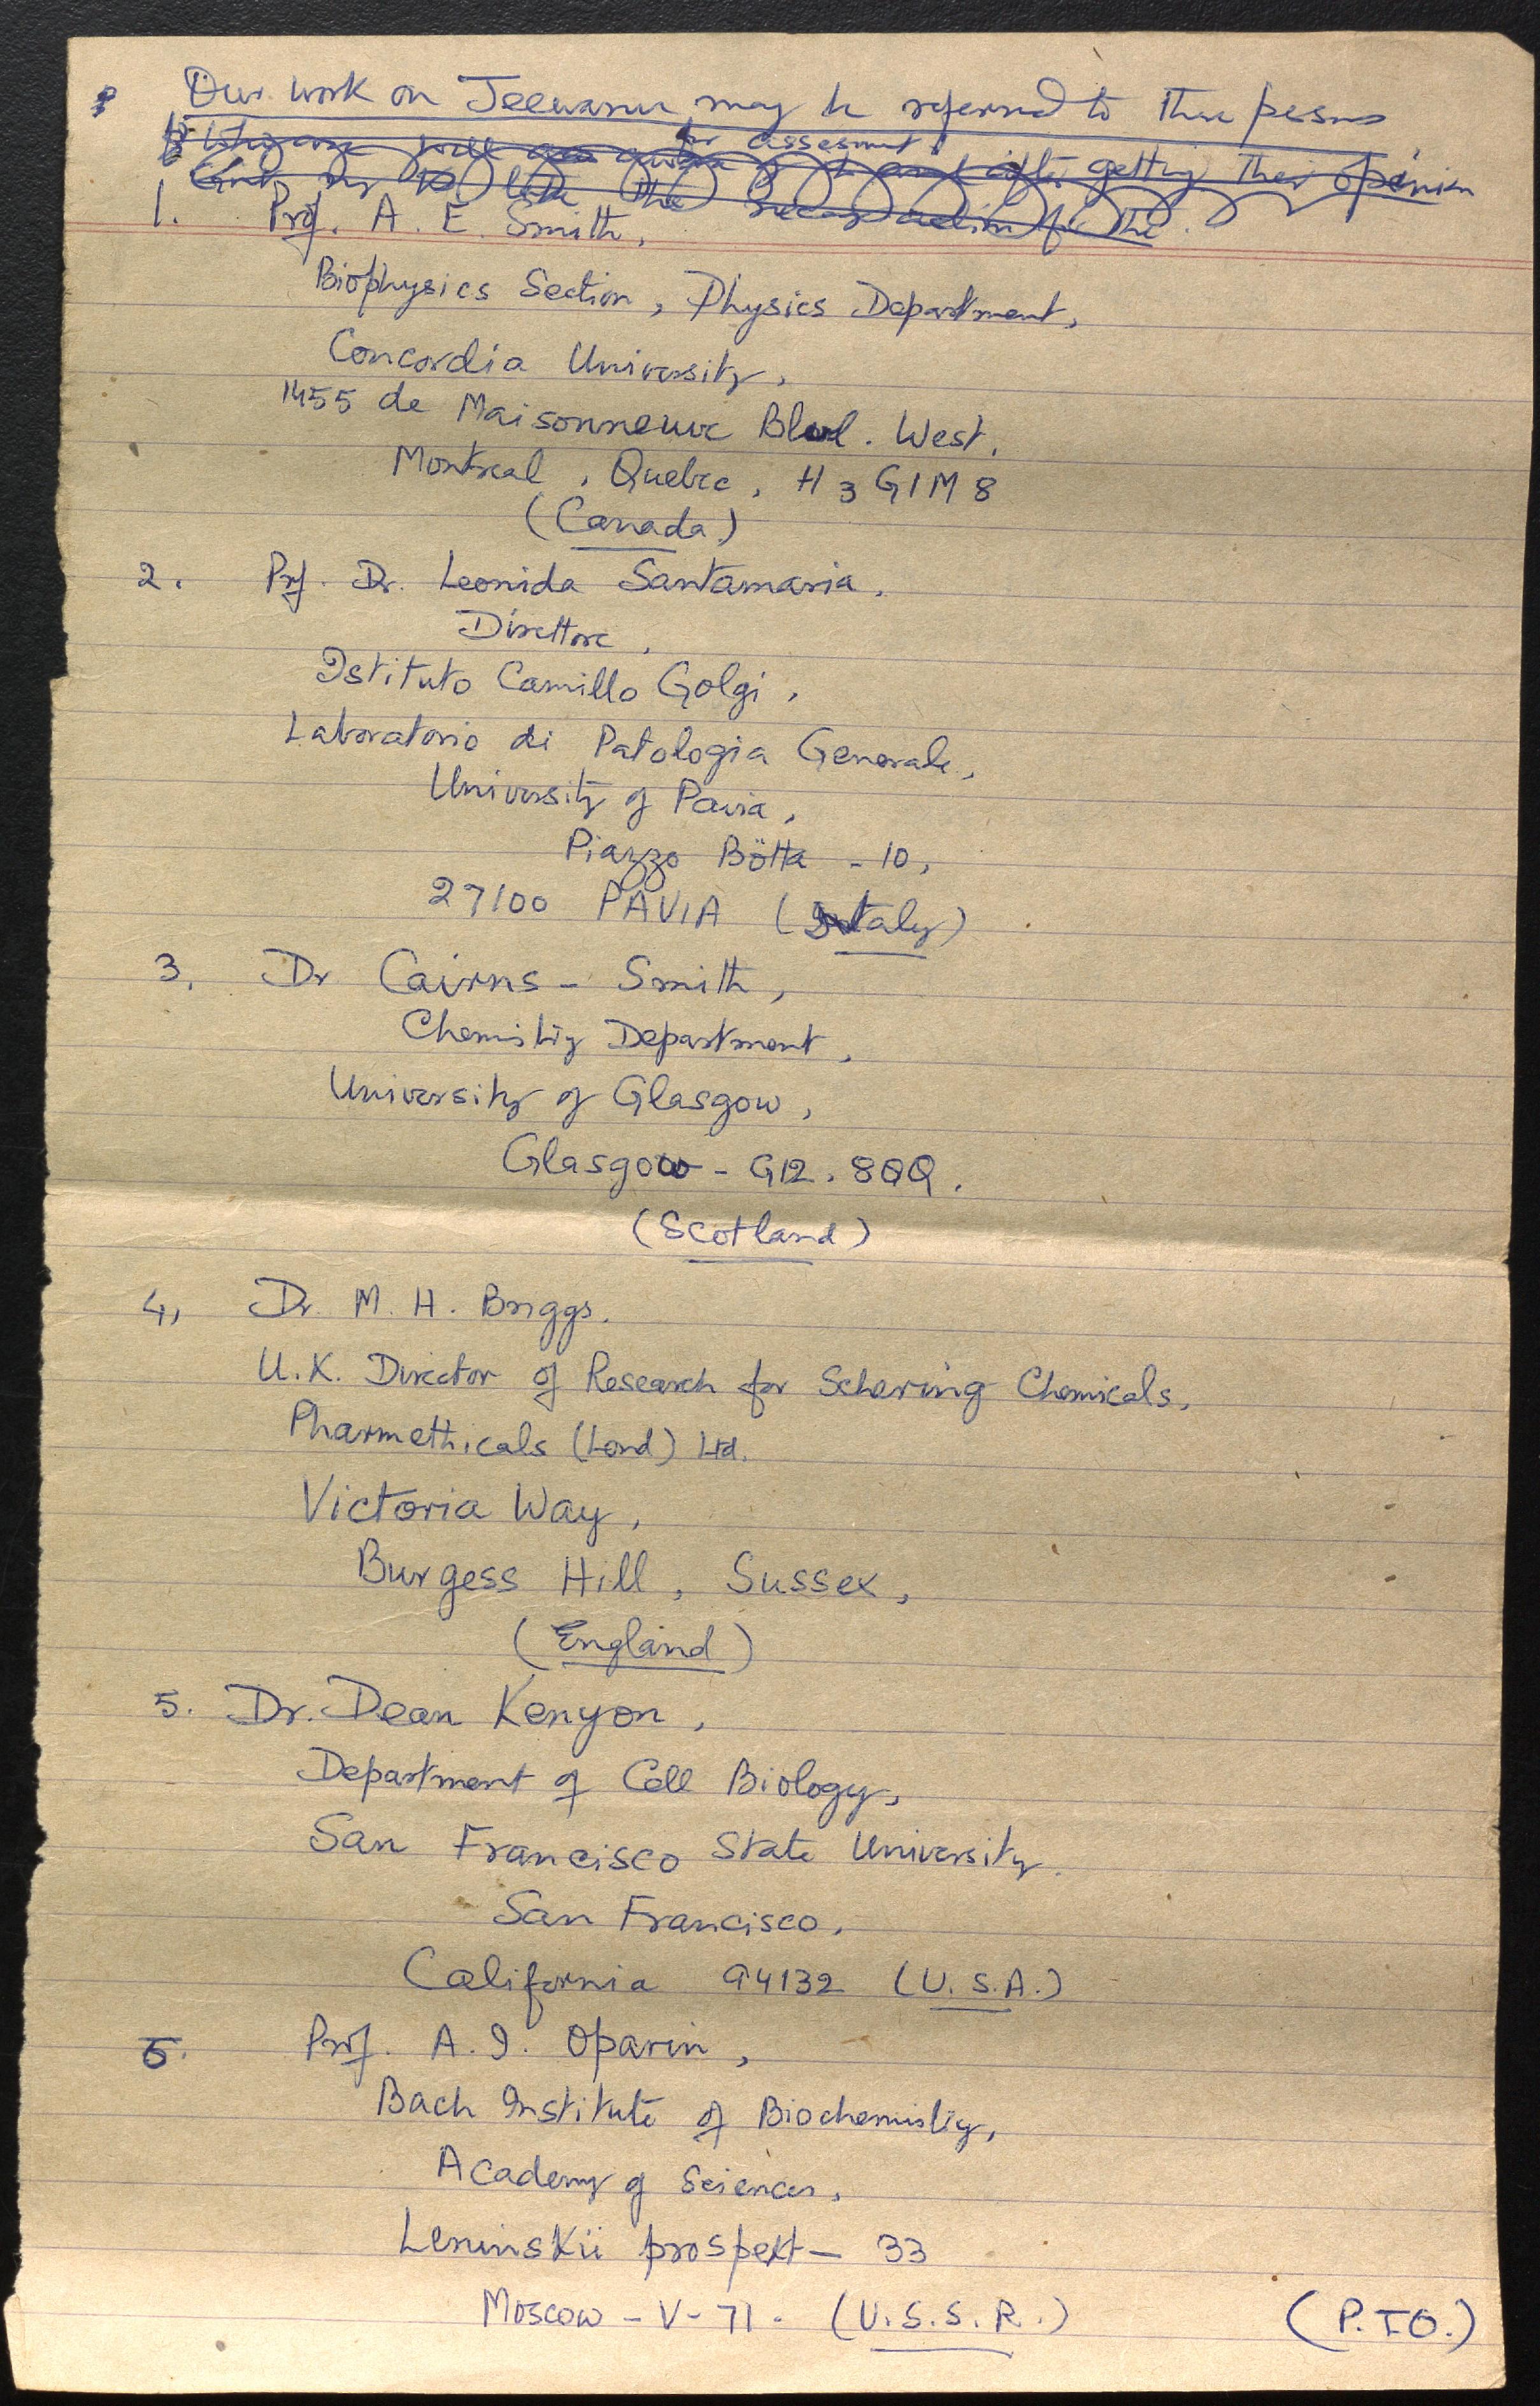 Our work on Jeewanu may be referred to these persons
for assesment.
getting their opinion
1. Prof. A. E. Smith,
Biophysics Section, Physics Department,
Concordia University,
1455 de Maisonneuve Blvd. West.
Montreal, Quebec, H3G1M8
(Canada)
2. Prof. Dr. Leonida Santamaria.
Direttore,
Istituto Camillo Golgi,
Laboratorio di Patologia Generale,
University of Pavia,
Piazzo Bötta - 10,
27100 PAVIA (Italy)
3. Dr Cairns - Smith,
Chemistry Department,
University of Glasgow,
Glasgow - G12. 8QQ.
(Scotland)
4, Dr. M. H. Briggs.
U.K. Director of Research for Schering Chemicals,
Pharmethicals (Lond) Ltd.
Victoria Way,
Burgess Hill, Sussex,
(England)
5. Dr. Dean Kenyon,
Department of Cell Biology,
San Francisco State University.
San Francisco,
California 94132 (U.S.A.)
6. Prof. A. I. Oparin,
Bach Institute of Biochemistry,
Academy of Sciences,
Leninskii prospekt - 33
Moscow - V - 71. (U.S.S.R.)
(P.T.O.)